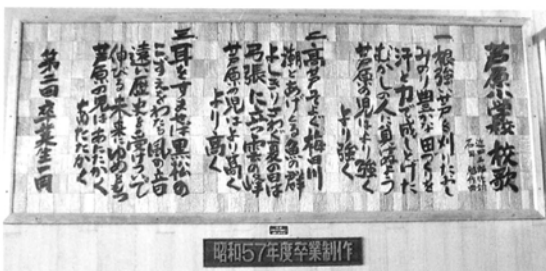 芦原小学校 校歌
一 根強い芦を刈りたおして
みのり豊かな田づくりを
汗と力で成しとげた
むかしの人に負けぬよう
芦原の児はより強く
より強く
二 高芦そよぐ梅田川
潮とあげくる魚の群
よしきりさわぐ夏の日は
弓張に立つ雲の峰
芦原の児はより高く
より高く
三 耳をすませば黒松の
こずえをわたる風の音
遠い歴史を受けついで
伸びる未来にゆめをもち
芦原の児はあたたかく
あたたかく
第二回卒業生一同
昭和57年度卒業制作